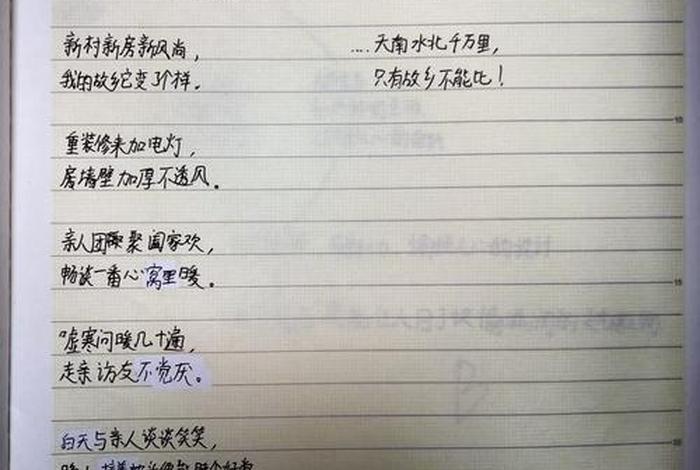 新村新房新风尚，
我的故乡它变了个样。
重装修来加电灯，
房墙壁加厚不透风。
亲人团聚阖家欢，
畅谈一番心窝里暖。
嘘寒问暖几十遍，
走亲访友不觉厌。
白天与亲人谈谈笑笑，
晚上
....天南水北千万里，
只有故乡不能比！
10
15
20